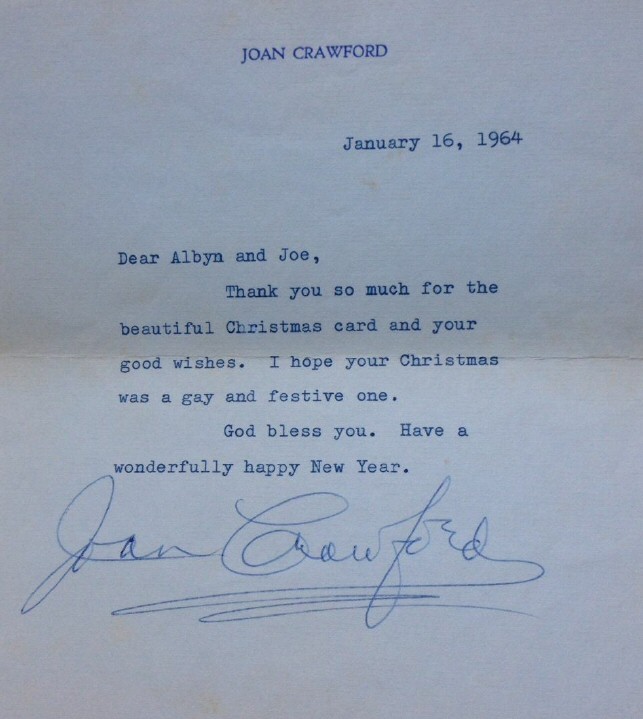 JOAN CRAWFORD
January 16, 1964
Dear Albyn and Joe,
Thank you so much for the
beautiful Christmas card and your
good wishes. I hope your Christmas
was a gay and festive one.
God bless you. Have a
wonderfully happy New Year.
Joan Crawford